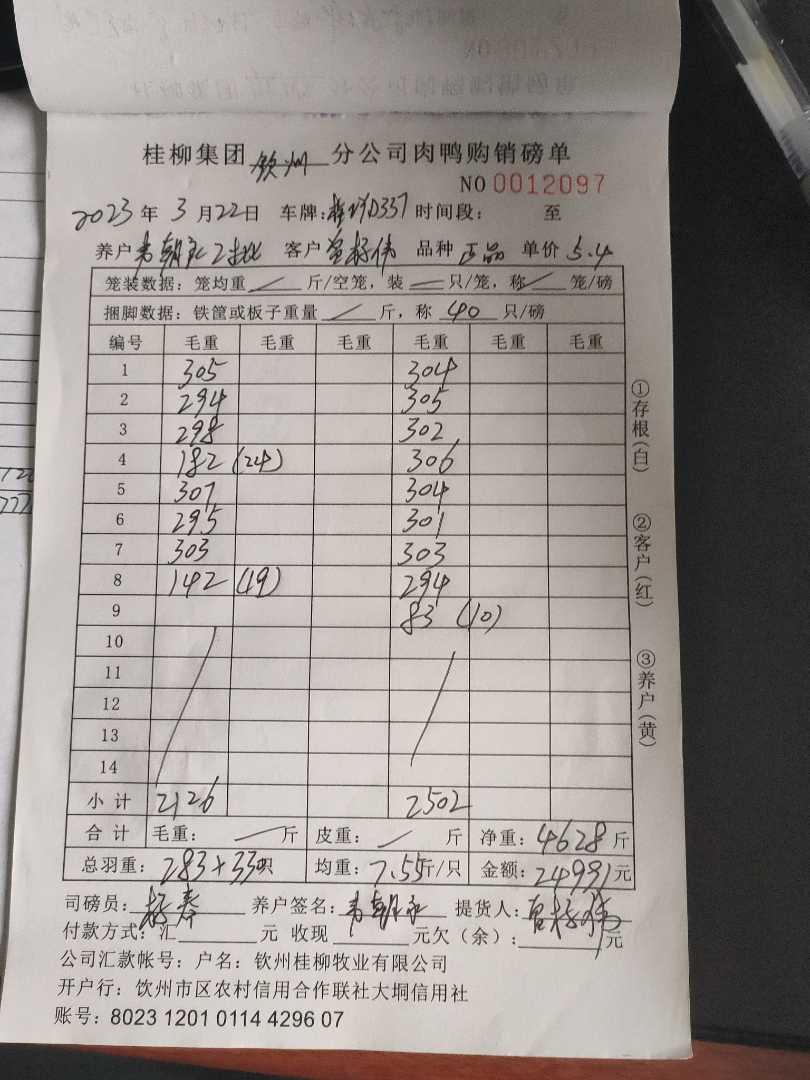 桂柳集团 钦州 分公司肉鸭购销磅单
NO 0012097
2023 年 3 月 22 日 车牌: D337 时间段: 至
养户 韦朝永 客户 曾 伟 品种 正品 单价 5.4
笼装数据: 笼均重 / 斤/空笼, 装 一 只/笼, 称 / 笼/磅
捆脚数据: 铁筐或板子重量 / 斤, 称 40 只/磅
编号 毛重 毛重 毛重 毛重 毛重 毛重
1 305 304
2 294 305
3 298 302
4 182 (24) 306
5 307 304
6 295 301
7 303 303
8 142 (19) 294
9 83 (10)
10
11
12
13
14
小计 2126 2502
合计 毛重: 斤 皮重: 斤 净重: 4628 斤
总羽重: 283+330只 均重: 7.55斤/只 金额: 24991元
司磅员: 养户签名: 韦朝永 提货人: 曾 伟
付款方式: 汇 元 收现 元欠(余): 元
公司汇款帐号: 户名: 钦州桂柳牧业有限公司
开户行: 饮州市区农村信用合作联社大垌信用社
账号: 8023 1201 0114 4296 07
①存根(白)
②客户(红)
③养户(黄)